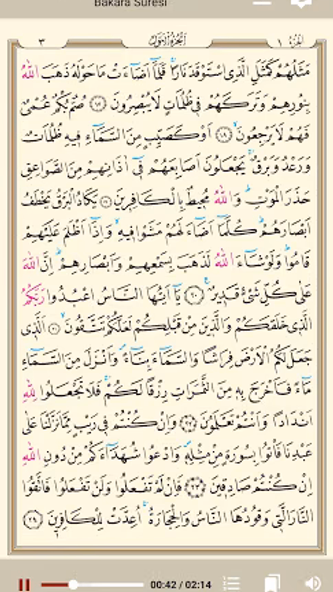 Bakara Suresi
٣ اَلْجُزْءُ الْاَوَّلُ ١
مَثَلُهُمْ كَمَثَلِ الَّذِي اسْتَوْقَدَ نَارًاۚ فَلَمَّٓا اَضَٓاءَتْ مَا حَوْلَهُ ذَهَبَ اللّٰهُ
بِنُورِهِمْ وَتَرَكَهُمْ فِي ظُلُمَاتٍ لَا يُبْصِرُونَ ﴿١٧﴾ صُمٌّ بُكْمٌ عُمْيٌ
فَهُمْ لَا يَرْجِعُونَۙ ﴿١٨﴾ اَوْ كَصَيِّبٍ مِنَ السَّمَٓاءِ فِيهِ ظُلُمَاتٌ
وَرَعْدٌ وَبَرْقٌۚ يَجْعَلُونَ اَصَابِعَهُمْ فِٓي اٰذَانِهِمْ مِنَ الصَّوَاعِقِ
حَذَرَ الْمَوْتِۜ وَاللّٰهُ مُحِيطٌ بِالْكَافِرِينَ ﴿١٩﴾ يَكَادُ الْبَرْقُ يَخْطَفُ
اَبْصَارَهُمْۜ كُلَّمَٓا اَضَٓاءَ لَهُمْ مَشَوْا فِيهِۙ وَاِذَٓا اَظْلَمَ عَلَيْهِمْ
قَامُواۜ وَلَوْ شَٓاءَ اللّٰهُ لَذَهَبَ بِسَمْعِهِمْ وَاَبْصَارِهِمْۜ اِنَّ اللّٰهَ
عَلٰى كُلِّ شَيْءٍ قَدِيرٌ۟ ﴿٢٠﴾ يَٓا اَيُّهَا النَّاسُ اعْبُدُوا رَبَّكُمُ
الَّذِي خَلَقَكُمْ وَالَّذِينَ مِنْ قَبْلِكُمْ لَعَلَّكُمْ تَتَّقُونَۙ ﴿٢١﴾ اَلَّذِي
جَعَلَ لَكُمُ الْاَرْضَ فِرَاشًا وَالسَّمَٓاءَ بِنَٓاءًۖ وَاَنْزَلَ مِنَ السَّمَٓاءِ
مَٓاءً فَاَخْرَجَ بِهِ مِنَ الثَّمَرَاتِ رِزْقًا لَكُمْۚ فَلَا تَجْعَلُوا لِلّٰهِ
اَنْدَادًا وَاَنْتُمْ تَعْلَمُونَ ﴿٢٢﴾ وَاِنْ كُنْتُمْ فِي رَيْبٍ مِمَّا نَزَّلْنَا عَلٰى
عَبْدِنَا فَأْتُوا بِسُورَةٍ مِنْ مِثْلِهِۖ وَادْعُوا شُهَدَٓاءَكُمْ مِنْ دُونِ اللّٰهِ
اِنْ كُنْتُمْ صَادِقِينَ ﴿٢٣﴾ فَاِنْ لَمْ تَفْعَلُوا وَلَنْ تَفْعَلُوا فَاتَّقُوا
النَّارَ الَّتِي وَقُودُهَا النَّاسُ وَالْحِجَارَةُۚ اُعِدَّتْ لِلْكَافِرِينَ ﴿٢٤﴾
00:42 / 02:14